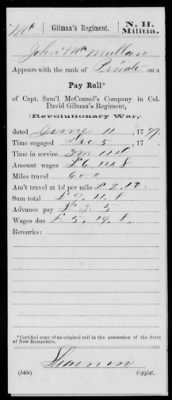 Mc | Gilman's Regiment. | N. H. Militia.
John McMullan
Appears with the rank of Private on a
Pay Roll*
of Capt. Sam'l McConnel's Company in Col.
David Gilman's Regiment,
(Revolutionary War,)
dated June 11, 1777.
Time engaged Dec 5, 17
Time in service 3m 11d
Amount wages £6.14.8
Miles travel 600
Am't travel at 1d per mile £2.10.
Sum total £9.4.8
Advance pay £3.5
Wages due £5.19.8.
Remarks:
*Certified copy of an original roll in the possession of the State of New Hampshire.
(545c) Copyist.